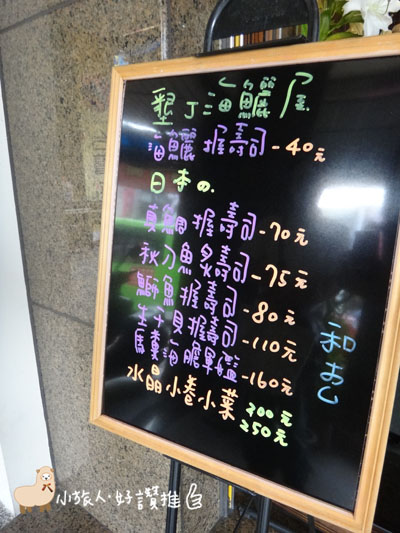 墾丁油鱺魚屋
油鱺握壽司-40元
日本の.
真鯛握壽司-70元
秋刀魚炙壽司-75元
鰤魚握壽司-80元
生干貝握壽司-110元
馬糞海膽軍艦-160元
水晶小卷小菜 200元
250元
和お
小旅人·好讚推